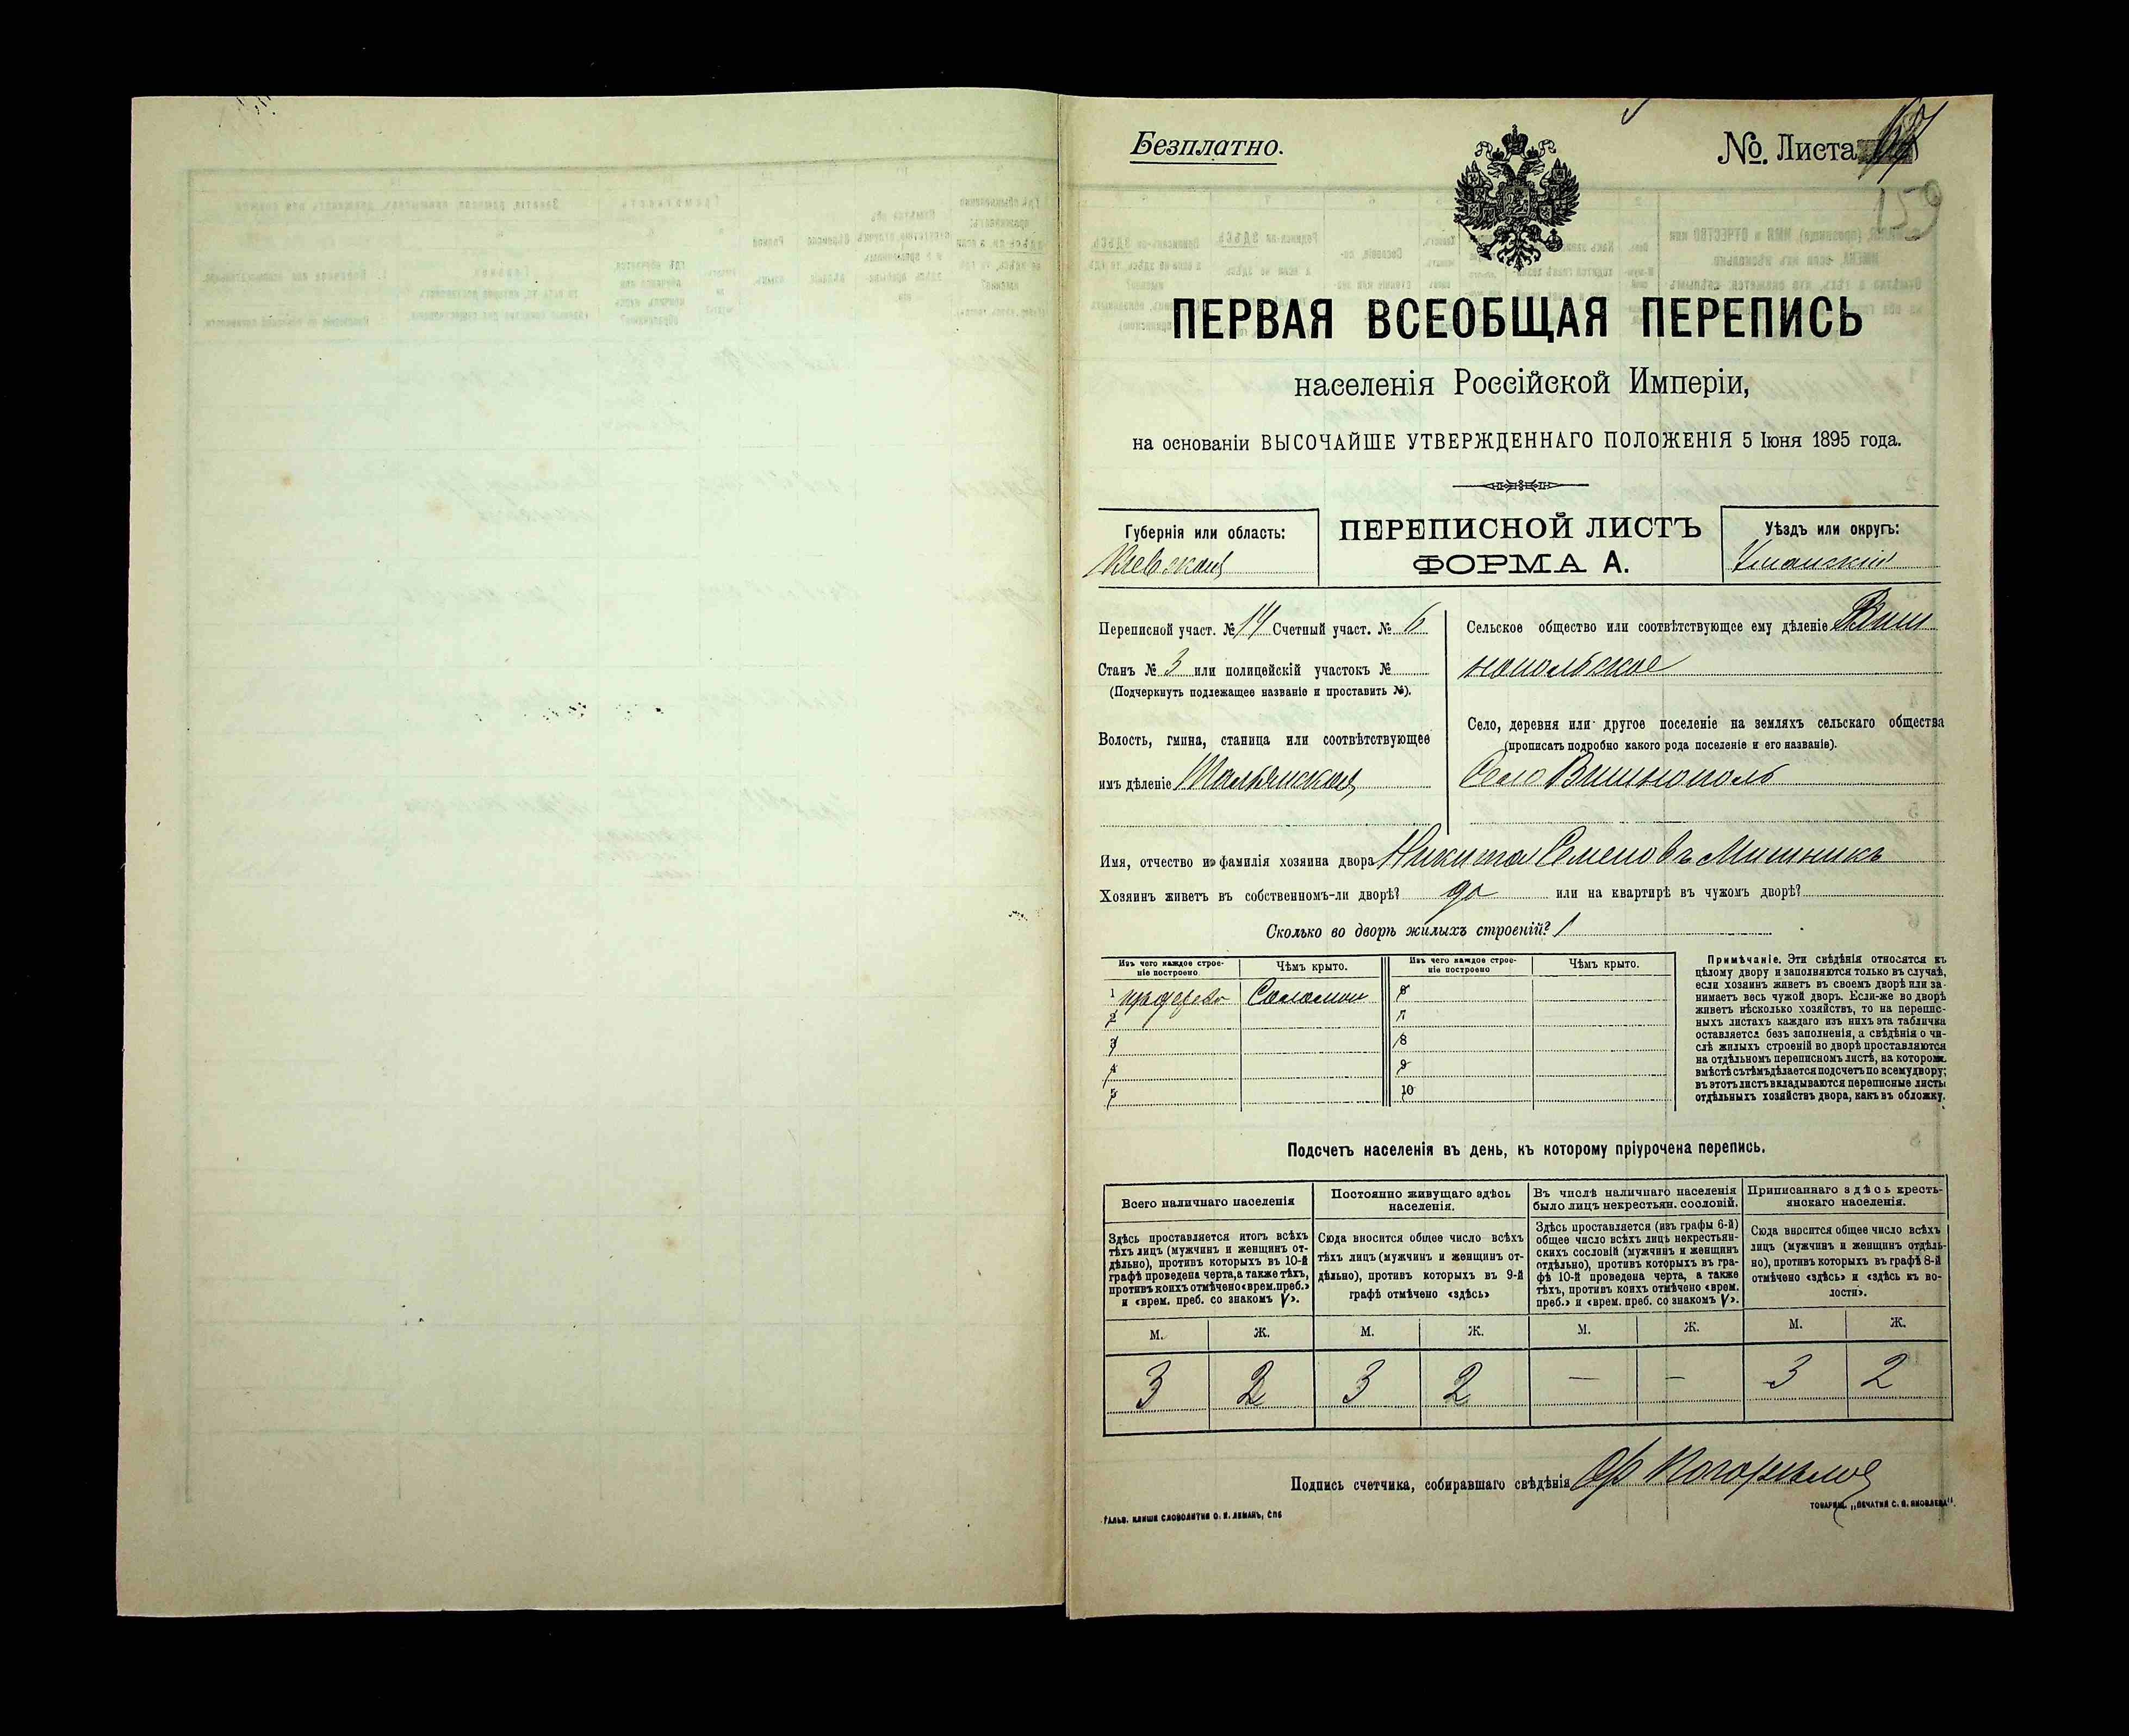 Безплатно.
№. Листа
159
ПЕРВАЯ ВСЕОБЩАЯ ПЕРЕПИСЬ
населенія Россійской Имперіи,
на основаніи ВЫСОЧАЙШЕ УТВЕРЖДЕННАГО ПОЛОЖЕНІЯ 5 Іюня 1895 года.
Губернія или область:
Кіевская
ПЕРЕПИСНОЙ ЛИСТЪ
ФОРМА А.
Уѣздъ или округъ:
Уманскій
Переписной участ. № 14 Счетный участ. № 6
Станъ № 3 или полицейскій участокъ №
(Подчеркнуть подлежащее названіе и проставить №).
Волость, гмина, станица или соотвѣтствующее
имъ дѣленіе Тальянская
Сельское общество или соотвѣтствующее ему дѣленіе Виш
нопольское
Село, деревня или другое поселеніе на земляхъ сельскаго общества
(прописать подробно какого рода поселеніе и его названіе).
Село Вишнополь
Имя, отчество и фамилія хозяина двора Никита Семеновъ Мишникъ
Хозяинъ живетъ въ собственномъ-ли дворѣ? да или на квартирѣ въ чужомъ дворѣ?
Сколько во дворѣ жилыхъ строеній? 1
Изъ чего каждое строе-
ніе построено
Чѣмъ крыто.
Изъ чего каждое строе-
ніе построено
Чѣмъ крыто.
1 Соломой 6
2 7
3 8
4 9
5 10
Примѣчаніе. Эти свѣдѣнія относятся къ
цѣлому двору и заполняются только въ случаѣ,
если хозяинъ живетъ въ своемъ дворѣ или за-
нимаетъ весь чужой дворъ. Если-же во дворѣ
живетъ нѣсколько хозяйствъ, то на перепис-
ныхъ листахъ каждаго изъ нихъ эта табличка
оставляется безъ заполненія, а свѣдѣнія о чи-
слѣ жилыхъ строеній во дворѣ проставляются
на отдѣльномъ переписномъ листѣ, на которомъ
вмѣстѣ съ тѣмъ дѣлается подсчетъ по всему двору;
въ этотъ листъ вкладываются переписные листы
отдѣльныхъ хозяйствъ двора, какъ въ обложку.
Подсчетъ населенія въ день, къ которому пріурочена перепись.
Всего наличнаго населенія
Постоянно живущаго здѣсь
населенія.
Въ числѣ наличнаго населенія
было лицъ некрестьян. сословій.
Приписаннаго здѣсь кресть-
янскаго населенія.
Здѣсь проставляется итогъ всѣхъ
тѣхъ лицъ (мужчинъ и женщинъ от-
дѣльно), противъ которыхъ въ 10-й
графѣ проведена черта, а также тѣхъ,
противъ коихъ отмѣчено «врем. преб.»
и «врем. преб. со знакомъ V».
Сюда вносится общее число всѣхъ
тѣхъ лицъ (мужчинъ и женщинъ от-
дѣльно), противъ которыхъ въ 9-й
графѣ отмѣчено «здѣсь»
Здѣсь проставляется (изъ графы 6-й)
общее число всѣхъ лицъ некрестьян-
скихъ сословій (мужчинъ и женщинъ
отдѣльно), противъ которыхъ въ гра-
фѣ 10-й проведена черта, а также
тѣхъ, противъ коихъ отмѣчено «врем.
преб.» и «врем. преб. со знакомъ V».
Сюда вносится общее число всѣхъ
лицъ (мужчинъ и женщинъ отдѣль-
но), противъ которыхъ въ графѣ 8-й
отмѣчено «здѣсь» и «здѣсь къ во-
лости».
М. Ж. М. Ж. М. Ж. М. Ж.
3 2 3 2 — — 3 2
Подпись счетчика, собиравшаго свѣдѣнія
ГАЛЬВ. КЛИШЕ СЛОВОЛИТНИ О. И. ЛЕМАНЪ, СПБ
ТОВАРИЩ. „ПЕЧАТНЯ С. П. ЯКОВЛЕВА".